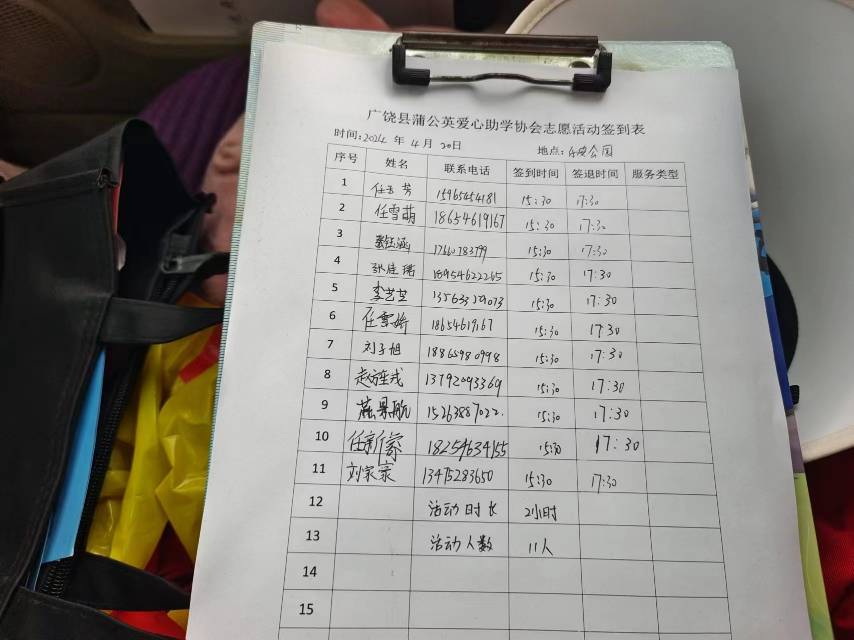 广饶县蒲公英爱心助学协会志愿活动签到表
时间:2024 年 4 月 20日 地点:乐安公园
序号 姓名 联系电话 签到时间 签退时间 服务类型
1 任玉芳 15965454181 15:30 17:30
2 任雪萌 18654619167 15:30 17:30
3 17660783799 15:30 17:30
4 15:30 17:30
5 李艺芝 15:30 17:30
6 任雪娇 18654619167 15:30 17:30
7 刘子旭 18865980998 15:30 17:30
8 13792093369 15:30 17:30
9 燕果航 15263887022. 15:30 17:30
10 18259634155 15:30 17:30
11 刘家豪 13475283650 15:30 17:30
12 活动时长 2小时
13 活动人数 11人
14
15